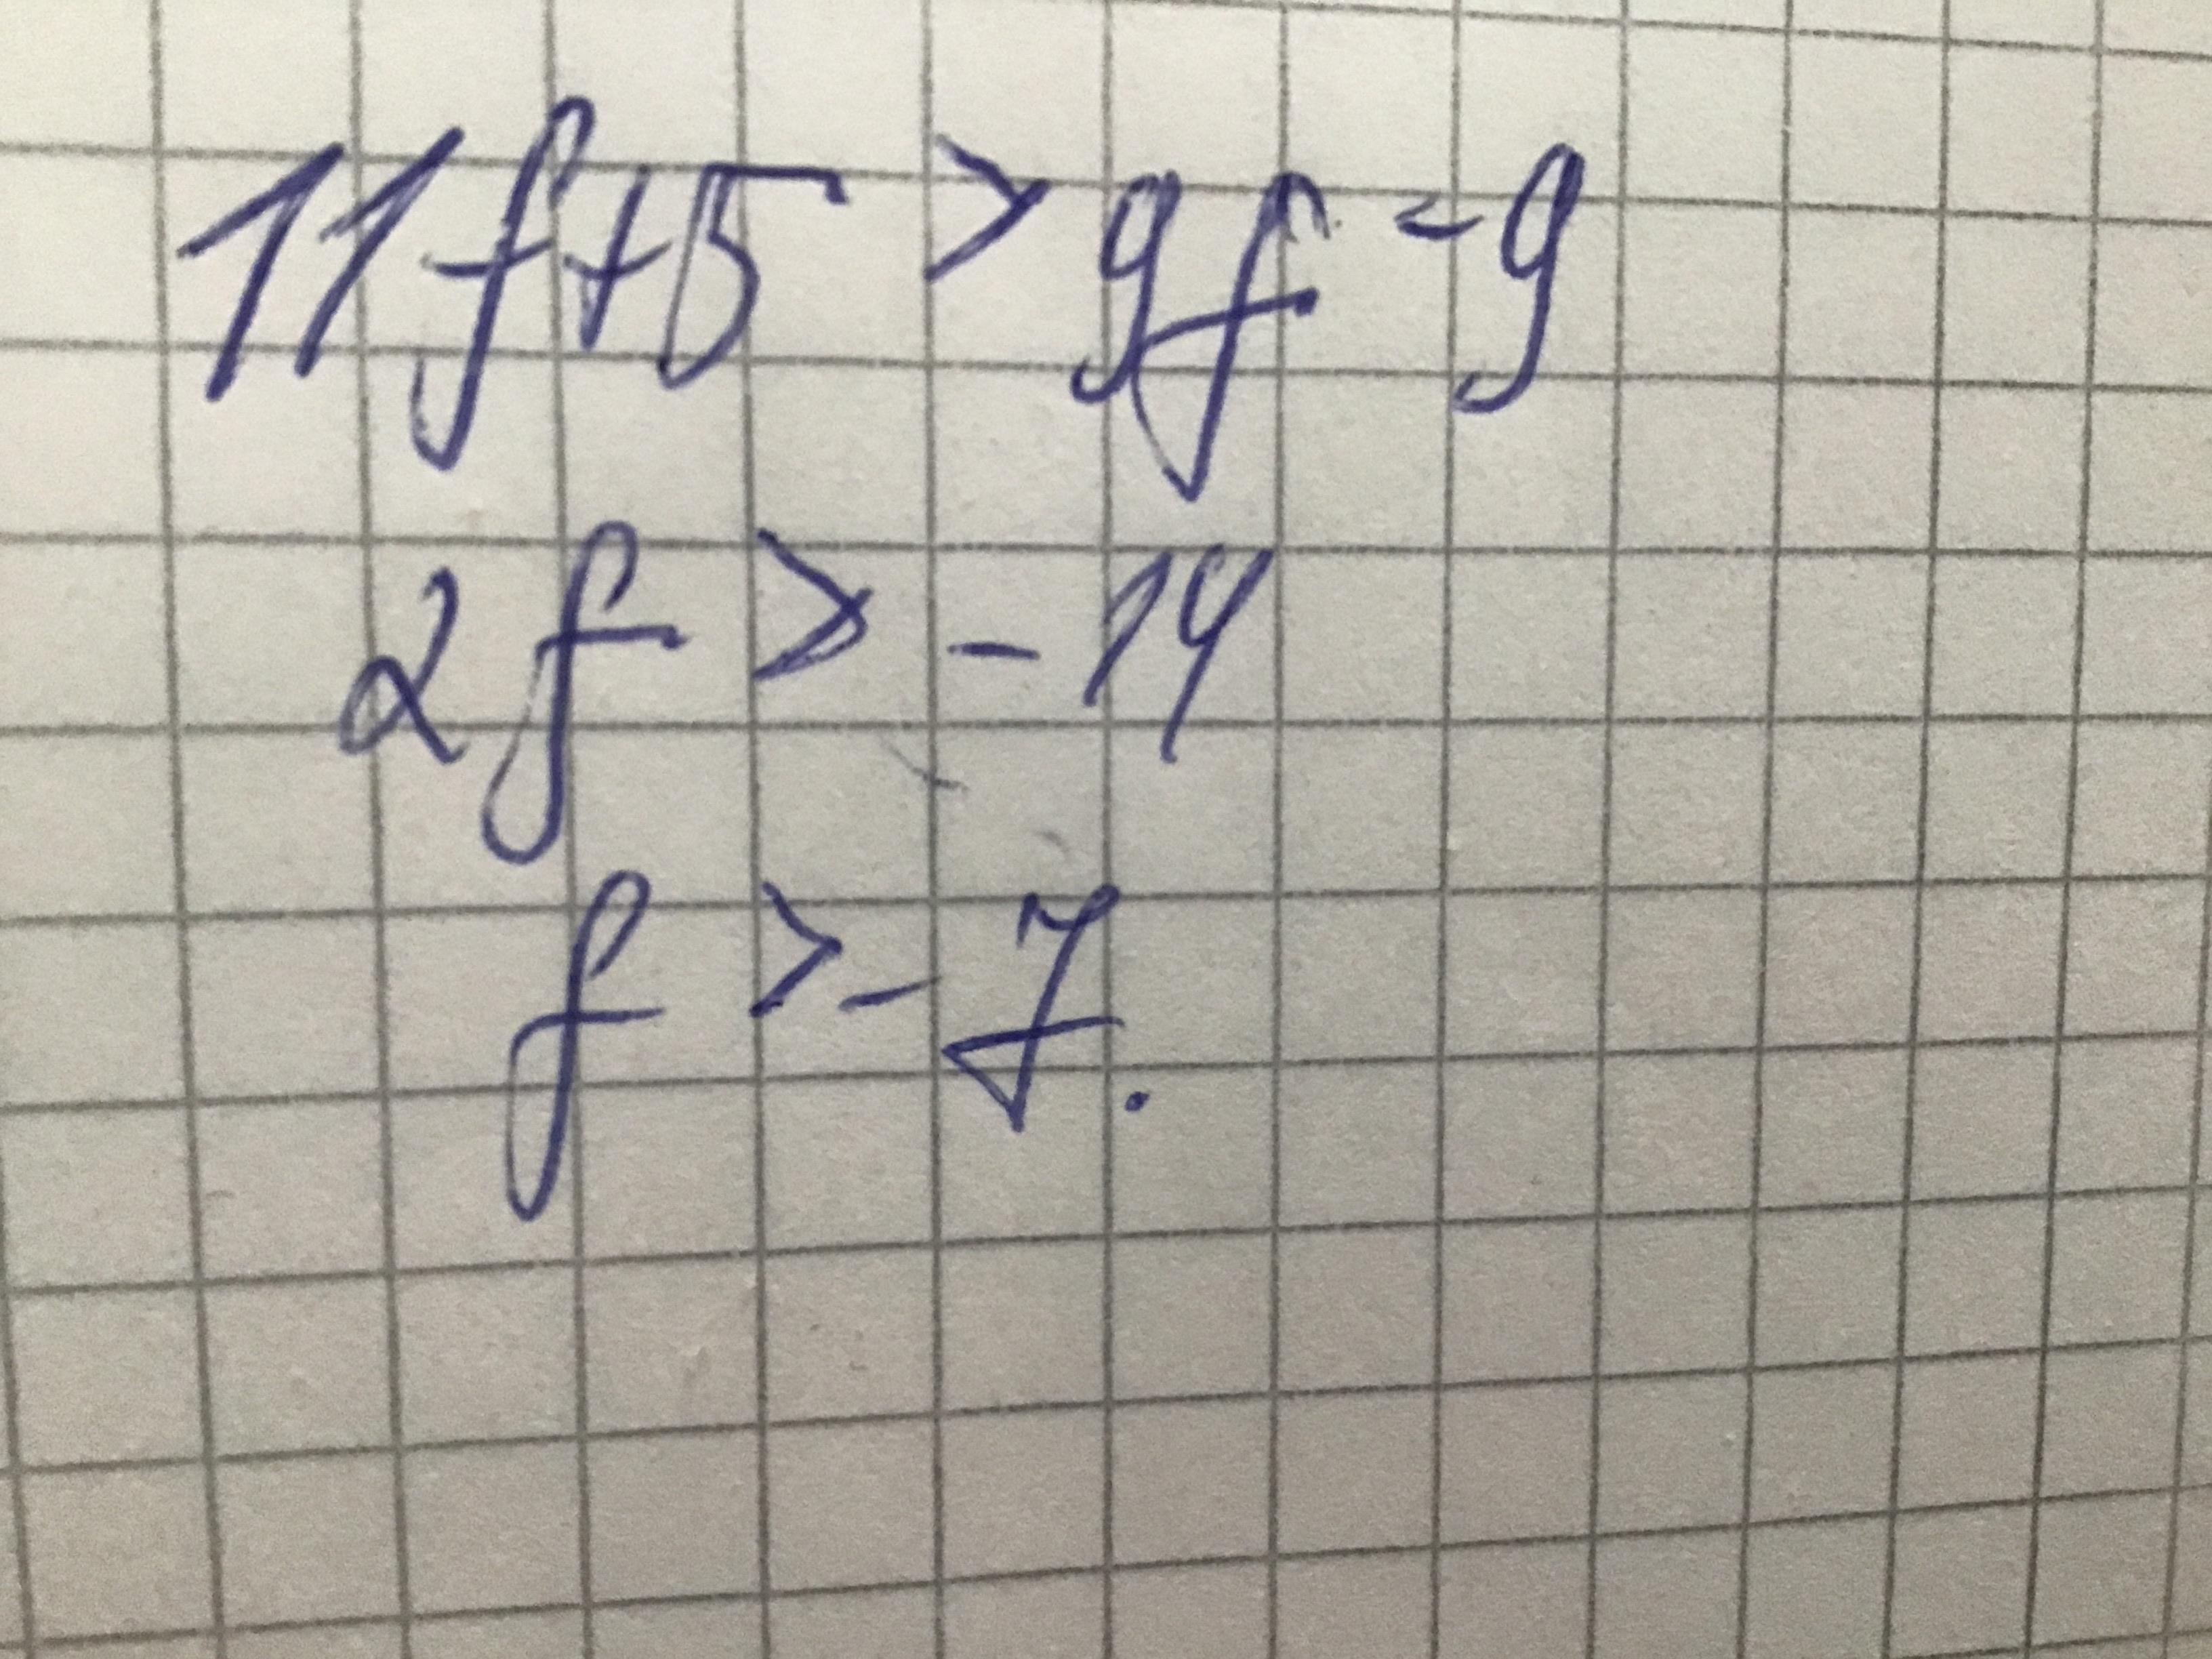 11f+5 > 9f - 9
2f > -14
f > -7.